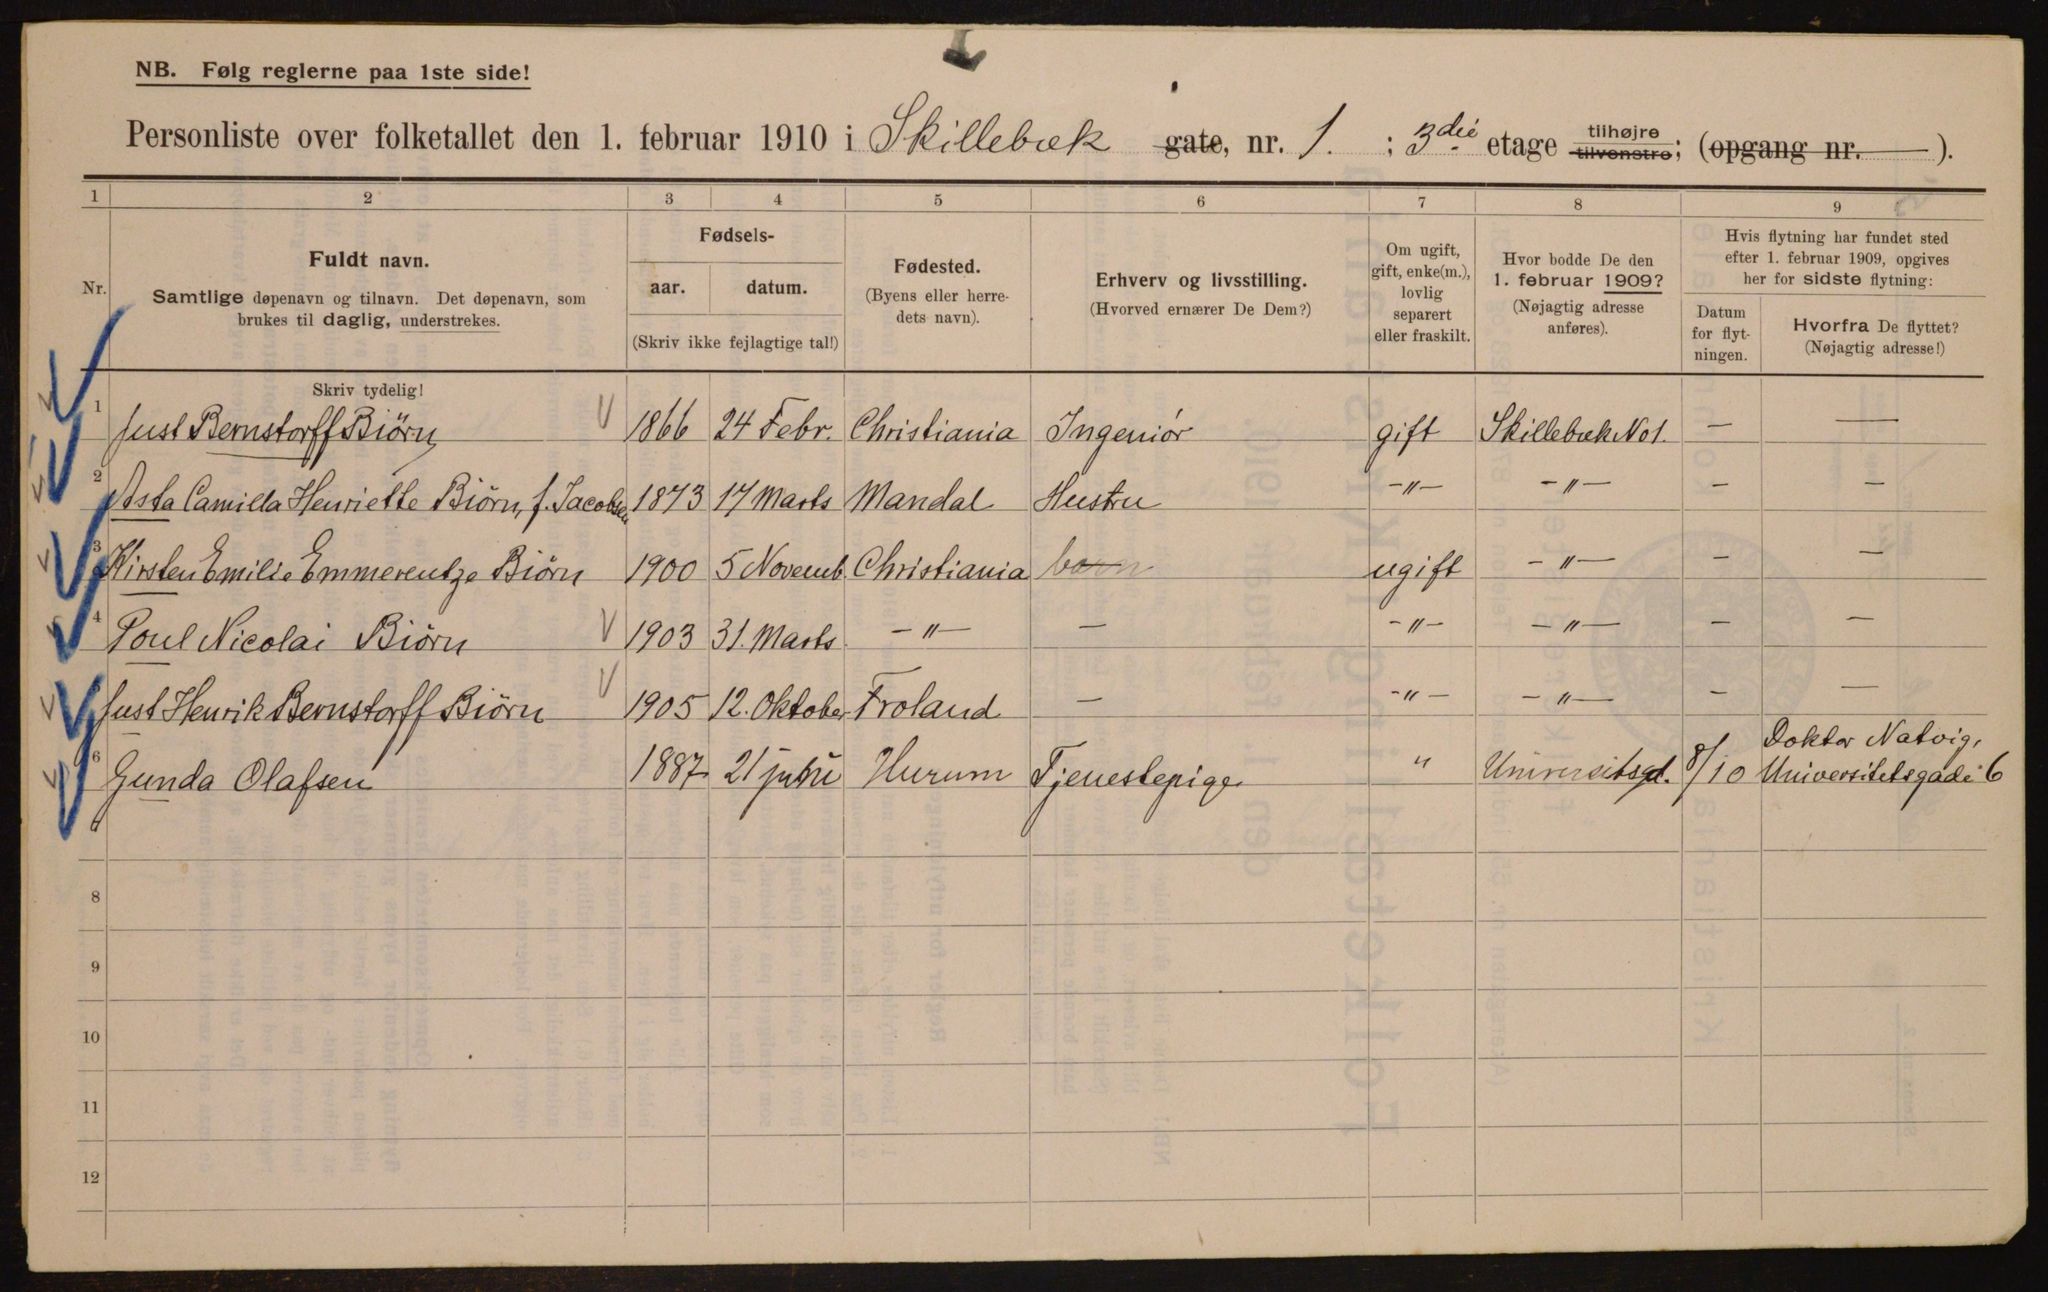 NB. Følg reglerne paa 1ste side!
Personliste over folketallet den 1. februar 1910 i Skillebæk gate, nr. 1. ; 3die etage tilhøjre tilvenstre; (opgang nr. ).
1 2 3 4 5 6 7 8 9
Nr.
Fuldt navn.
Samtlige døpenavn og tilnavn. Det døpenavn, som
brukes til daglig, understrekes.
Skriv tydelig!
Fødsels-
aar. datum.
(Skriv ikke fejlagtige tal!)
Fødested.
(Byens eller herre-
dets navn).
Erhverv og livsstilling.
(Hvorved ernærer De Dem?)
Om ugift,
gift, enke(m.),
lovlig
separert
eller fraskilt.
Hvor bodde De den
1. februar 1909?
(Nøjagtig adresse
anføres).
Hvis flytning har fundet sted
efter 1. februar 1909, opgives
her for sidste flytning:
Datum
for flyt-
ningen.
Hvorfra De flyttet?
(Nøjagtig adresse!)
1 Just Bernstorff Biörn 1866 24 Febr. Christiania Ingeniör gift Skillebæk No 1. — —
2 Asta Camilla Henriette Biörn, f. Jacobsen 1873 17 Marts Mandal Hustru -"- -"- — —
3 Kirsten Emilie Emmerentze Biörn 1900 5 Novemb. Christiania barn ugift -"- — —
4 Poul Nicolai Biörn 1903 31. Marts -"- — -"- -"- — —
Just Henrik Bernstorff Biörn 1905 12. Oktober Froland — -"- -"- — —
6 Gunda Olafsen 1887 21 juni Hurum Tjenestepige " Universitsgd. 8/10 Doktor Natvig,
Universitetsgade 6
8
9
10
11
12